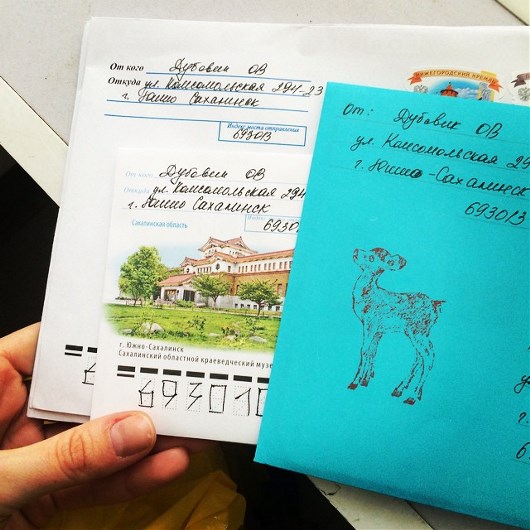 От кого Дубовик ОВ
Откуда ул. Комсомольская 294-23
г. Южно Сахалинск
Индекс места отправления
693013
НИЖЕГОРОДСКИЙ КРЕМЛЬ
От кого Дубовик ОВ
Откуда ул. Комсомольская 294
г. Южно Сахалинск
69301
Сахалинская область
г. Южно-Сахалинск
Сахалинский областной краеведческий музе
693010
От: Дубовик ОВ
ул. Комсомольская 29
г. Южно-Сахалинск
693013
у
г.
6